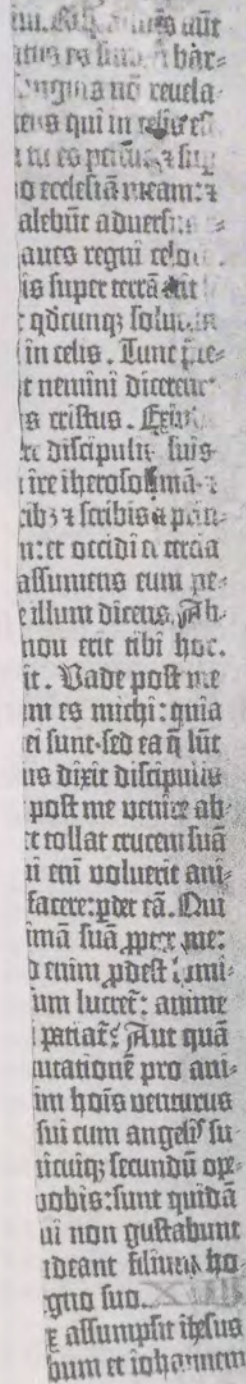 atus es simō bar=
nguis nō reuela
eus qui in celis est
tu es petrus, ⁊ sup
o ecclesiā meam: ⁊
alebūt aduersus
aues regni celo
is super terrā erit
qd̄cunqꝫ soluer
in celis. Tunc pre=
t nemini dicerent
s cristus. Exin
re discipulis suis
ire iherosolimā ⁊
ribꝫ ⁊ scribis a prin=
m: et occidi et tercia
assumens eum pe=
e illum dicens. Ab=
non erit tibi hoc.
it. Vade post me
m es michi: quia
ei sunt. sed ea q̄ sūt
us dixit discipulis
post me uenire ab=
et tollat crucem suā
i eni uoluerit ani=
facere: ꝑdet eā. Qui
imā suā ꝓpter me:
d enim ꝓdest homi=
um lucret̄: anime
patiat̄? Aut quā
mutationē pro ani=
im hoīs uenturus
sui cum angelis su=
nicuiqꝫ secundū ope=
uobis: sunt quidā
ui non gustabunt
ideant filium ho=
gno suo. XVII
x assumpsit ihesus
bum et iohannem